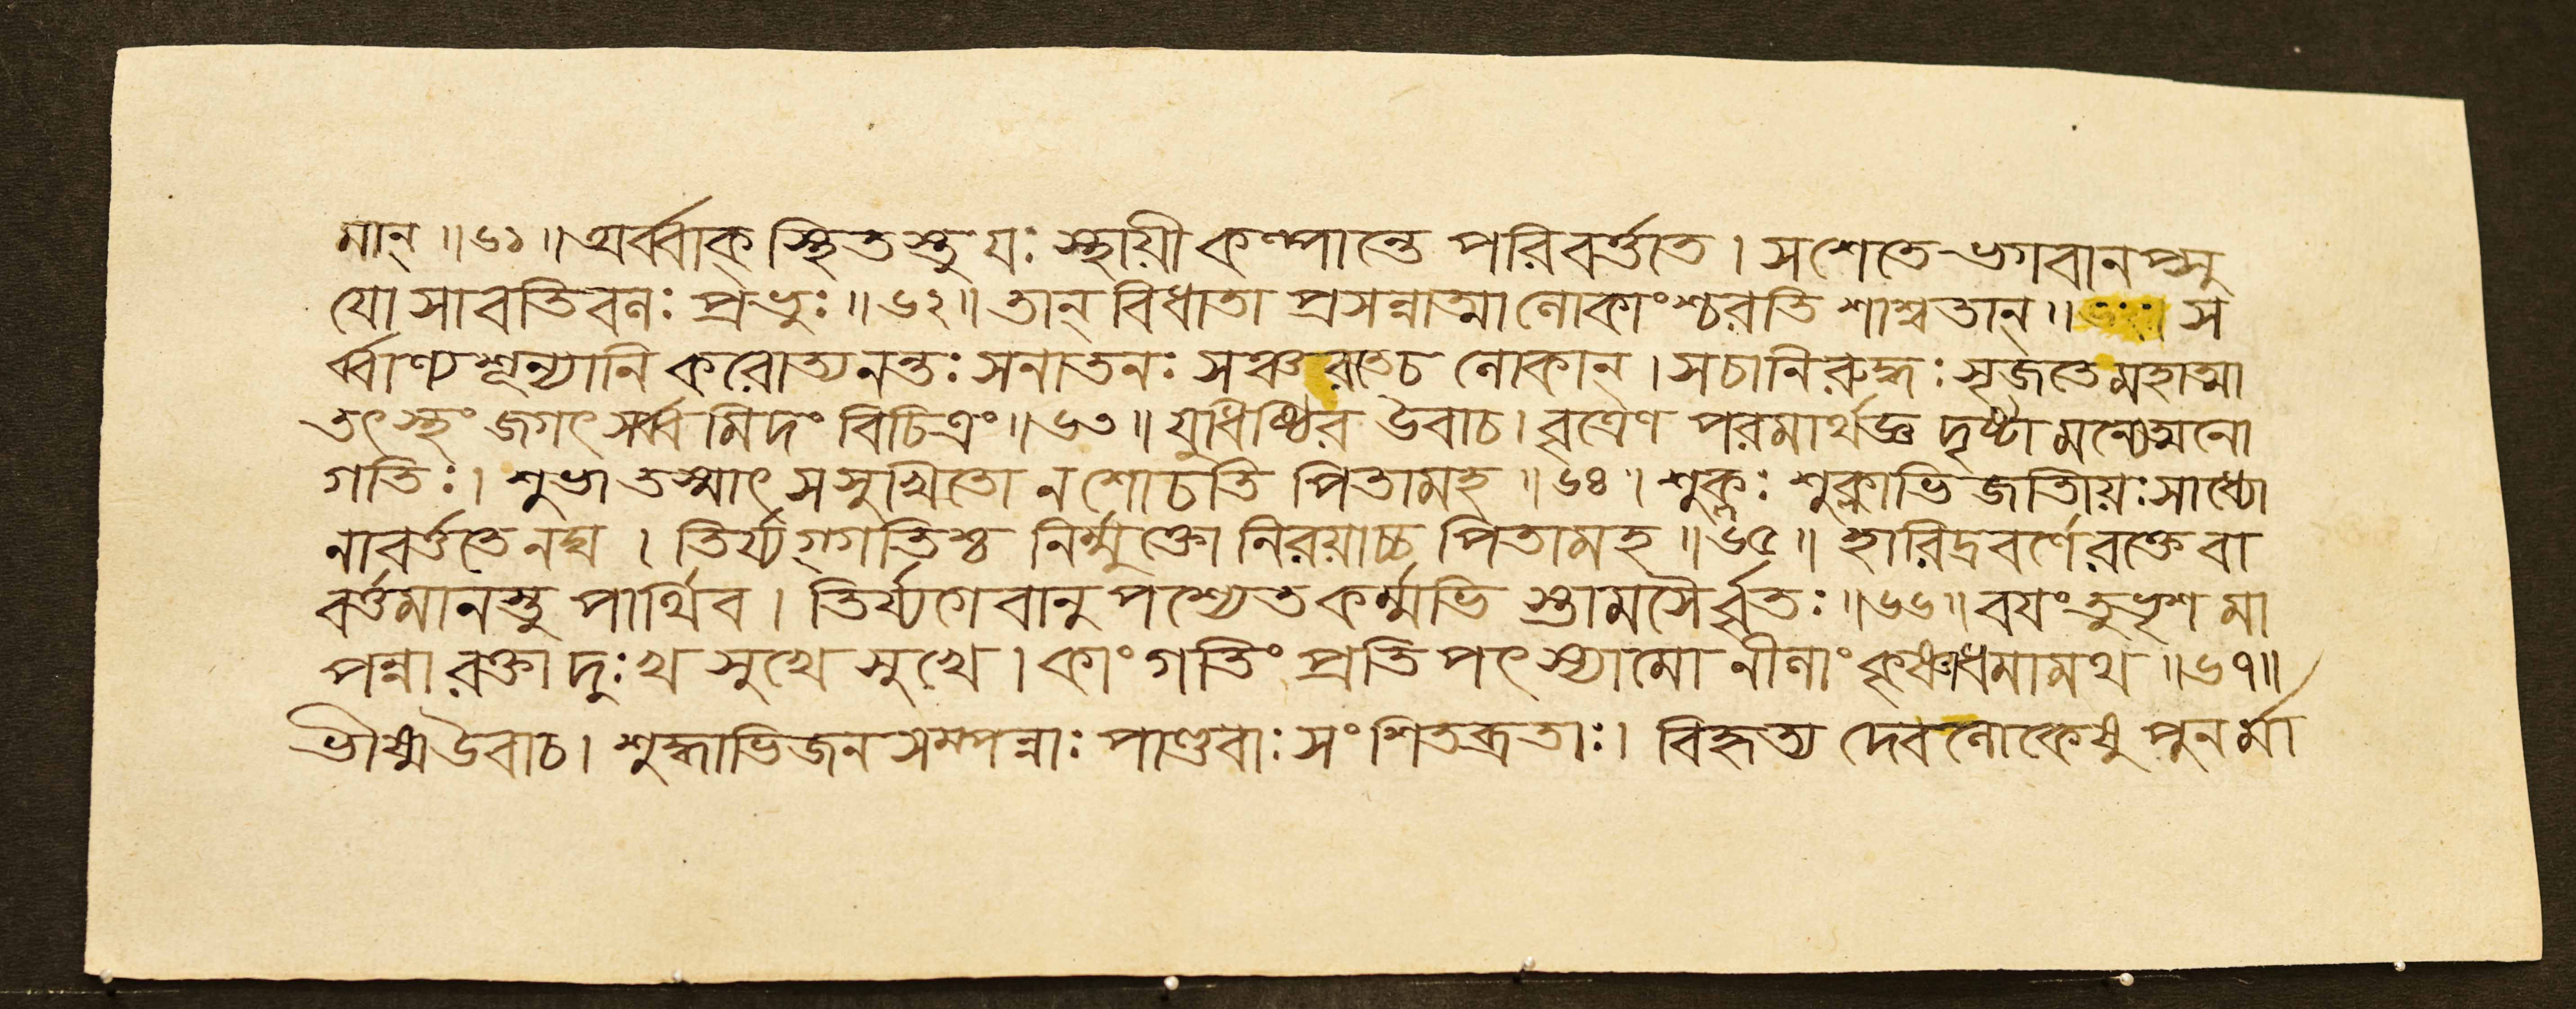 মান্ ॥৬১॥ অর্ব্বাক্ স্থিতস্তু যঃ স্থায়ী কল্পান্তে পরিবর্ত্ততে । স শেতে ভগবানপ্সু
যোসাবতিবলঃ প্রভুঃ ॥৬২॥ তান্ বিধাতা প্রসন্নাত্মা লোকাংশ্চরতি শাশ্বতান্ ॥ স
র্ব্বাণ্যশূন্যানি করোত্যনন্তঃ সনাতনঃ সঞ্চরতে চ লোকান্ । স চানিরুদ্ধঃ সৃজতে মহাত্মা
তৎস্থং জগৎ সর্ব্বমিদং বিচিত্রং ॥৬৩॥ যুধিষ্ঠির উবাচ । বৃত্রেণ পরমার্থজ্ঞ দৃষ্টা মন্যেত্মনো
গতিঃ । শুভা তস্মাৎ স সুখিতো ন শোচতি পিতামহ ॥৬৪। শুক্লঃ শুক্লাভিজাতীয়ঃ সাধ্যো
নাবর্ত্ততেনঘ । তির্য্যগ্গতিশ্চ নির্ম্মুক্তো নিরয়াচ্চ পিতামহ ॥৬৫॥ হারিদ্রবর্ণে রক্তে বা
বর্ত্তমানস্তু পার্থিব । তির্য্যগেবানুপশ্যেত কর্ম্মভিস্তামসৈর্বৃতঃ ॥৬৬॥ বযংতু ভৃশমা
পন্না রক্তা দুঃখসুখেসুখে । কাং গতিং প্রতিপৎস্যামো নীলাং কৃষ্ণাধমামথ ॥৬৭॥
ভীষ্ম উবাচ । শুদ্ধাভিজনসম্পন্নাঃ পাণ্ডবাঃ সংশিতব্রতাঃ । বিহৃত্য দেবলোকেষু পুনর্মা